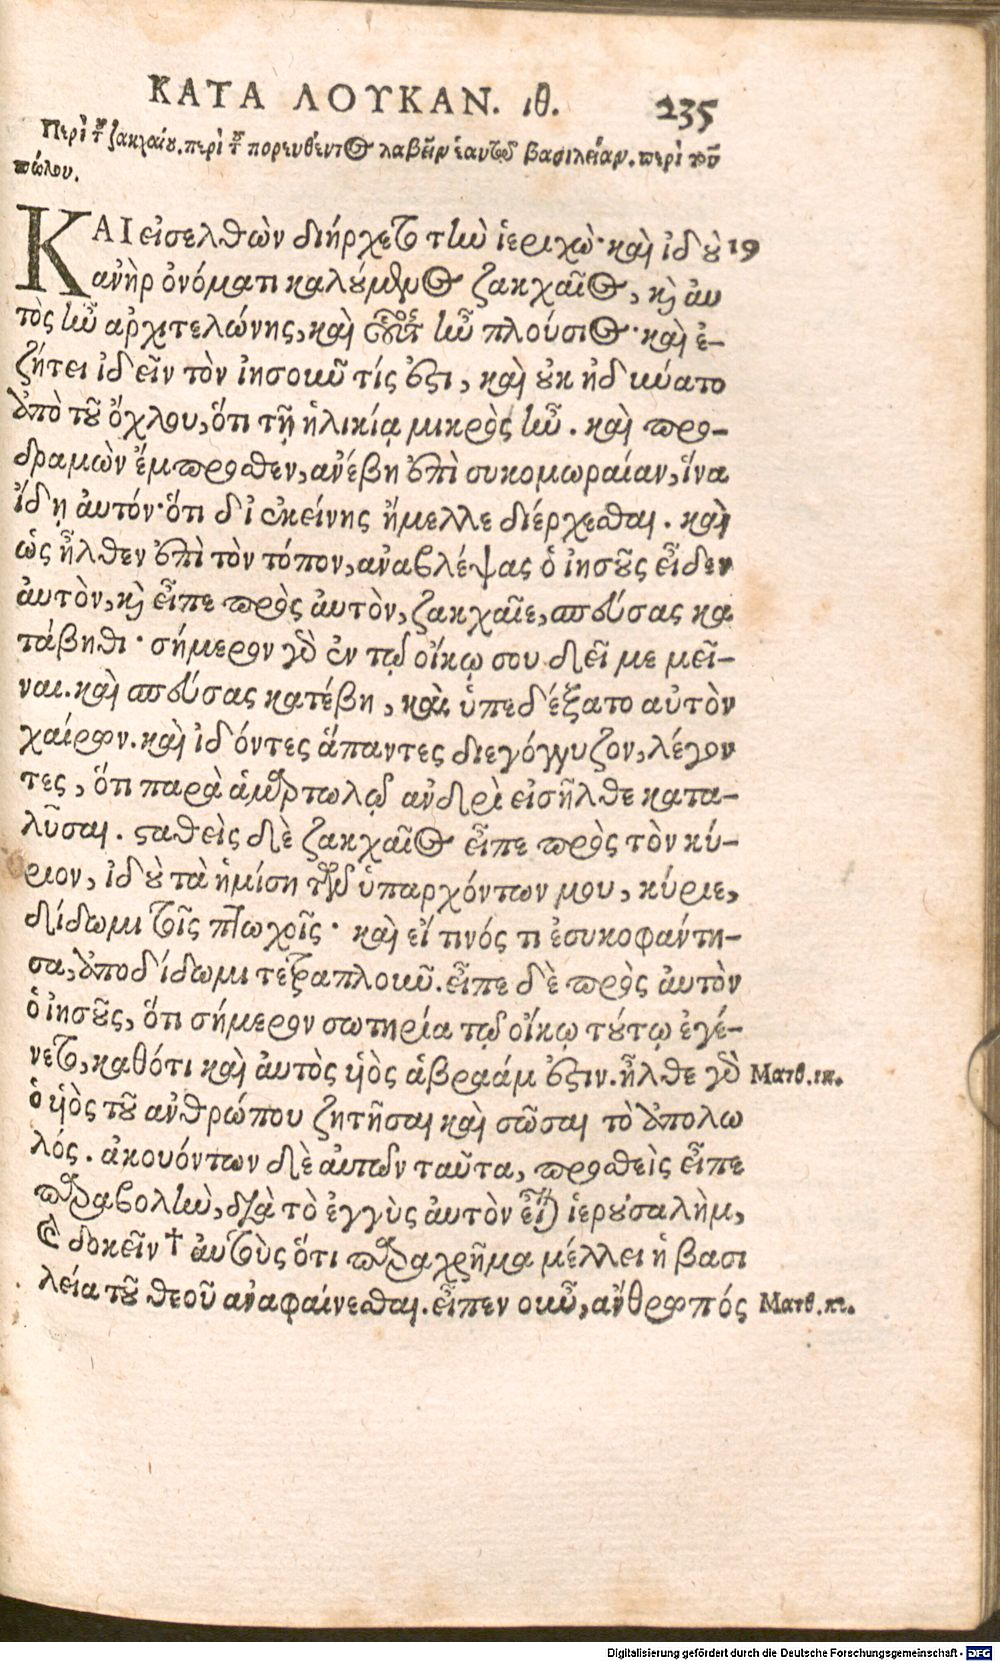 ΚΑΤΑ ΛΟΥΚΑΝ. ιθ. 235
Περὶ τοῦ ζακχαίου. περὶ τοῦ πορευθέντος λαβεῖν ἑαυτῷ βασιλείαν. περὶ τοῦ
πώλου.
ΚΑΙ εἰσελθὼν διήρχετο τὴν ἱεριχώ· καὶ ἰδοὺ 19
ἀνὴρ ὀνόματι καλούμενος ζακχαῖος, καὶ αὐ
τὸς ἦν ἀρχιτελώνης, καὶ οὗτος ἦν πλούσιος· καὶ ἐ-
ζήτει ἰδεῖν τὸν ἰησοῦν τίς ἐστι, καὶ οὐκ ἠδύνατο
ἀπὸ τοῦ ὄχλου, ὅτι τῇ ἡλικίᾳ μικρὸς ἦν. καὶ προ-
δραμὼν ἔμπροσθεν, ἀνέβη ἐπὶ συκομωραίαν, ἵνα
ἴδῃ αὐτόν· ὅτι δι ἐκείνης ἤμελλε διέρχεσθαι. καὶ
ὡς ἦλθεν ἐπὶ τὸν τόπον, ἀναβλέψας ὁ ἰησοῦς εἶδεν
αὐτὸν, καὶ εἶπε πρὸς αὐτὸν, ζακχαῖε, σπεύσας κα
τάβηθι· σήμερον γὰρ ἐν τῷ οἴκῳ σου δεῖ με μεῖ-
ναι. καὶ σπεύσας κατέβη, καὶ ὑπεδέξατο αὐτὸν
χαίρων. καὶ ἰδόντες ἅπαντες διεγόγγυζον, λέγον
τες, ὅτι παρὰ ἁμαρτωλῷ ἀνδρὶ εἰσῆλθε κατα-
λῦσαι. σταθεὶς δὲ ζακχαῖος εἶπε πρὸς τὸν κύ-
ριον, ἰδοὺ τὰ ἡμίση τῶν ὑπαρχόντων μου, κύριε,
δίδωμι τοῖς πτωχοῖς· καὶ εἴ τινός τι ἐσυκοφάντη-
σα, ἀποδίδωμι τετραπλοῦν. εἶπε δὲ πρὸς αὐτὸν
ὁ ἰησοῦς, ὅτι σήμερον σωτηρία τῷ οἴκῳ τούτῳ ἐγέ-
νετο, καθότι καὶ αὐτὸς υἱὸς ἀβραάμ ἐστιν. ἦλθε γὰρ Ματθ. ιη.
ὁ υἱὸς τοῦ ἀνθρώπου ζητῆσαι καὶ σῶσαι τὸ ἀπολω
λός. ἀκουόντων δὲ αὐτῶν ταῦτα, προσθεὶς εἶπε
παραβολὴν, διὰ τὸ ἐγγὺς αὐτὸν εἶναι ἱερουσαλὴμ,
καὶ δοκεῖν † αὐτοὺς ὅτι παραχρῆμα μέλλει ἡ βασι
λεία τοῦ θεοῦ ἀναφαίνεσθαι. εἶπεν οὖν, ἄνθρωπός Ματθ. κε.
Digitalisierung gefördert durch die Deutsche Forschungsgemeinschaft - DFG